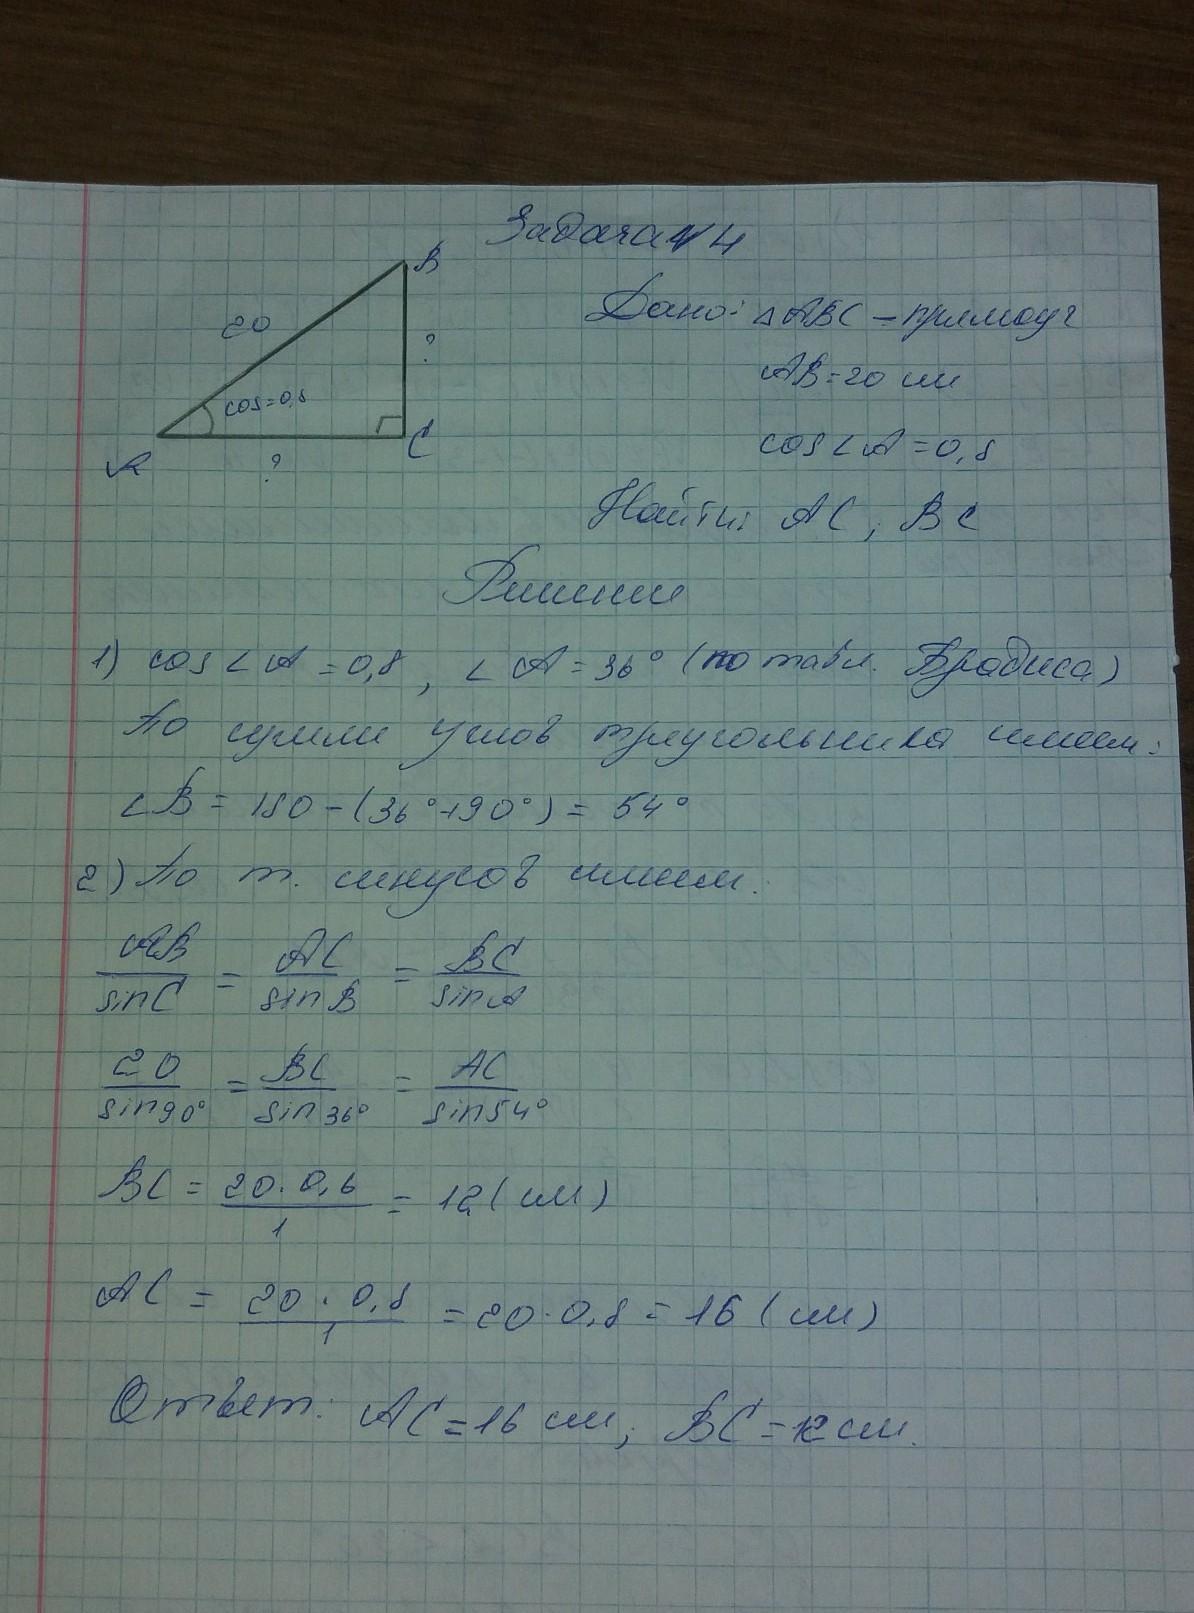 Задача 4
B
20
?
cos=0,8
A
?
C
Дано: △ABC – прямоуг
AB=20 см
cos∠A=0,8
Найти: AC, BC
Решение
1) cos∠A=0,8, ∠A=36° (по табл. Брадиса)
По сумме углов треугольника имеем:
∠B = 180-(36°+90°)= 54°
2) По т. синусов имеем:
AB/sinC = AC/sinB = BC/sinA
20/sin90° = BC/sin36° = AC/sin54°
BC = 20·0,6/1 = 12 (см)
AC = 20·0,8/1 = 20·0,8 = 16 (см)
Ответ: AC=16 см; BC=12 см.